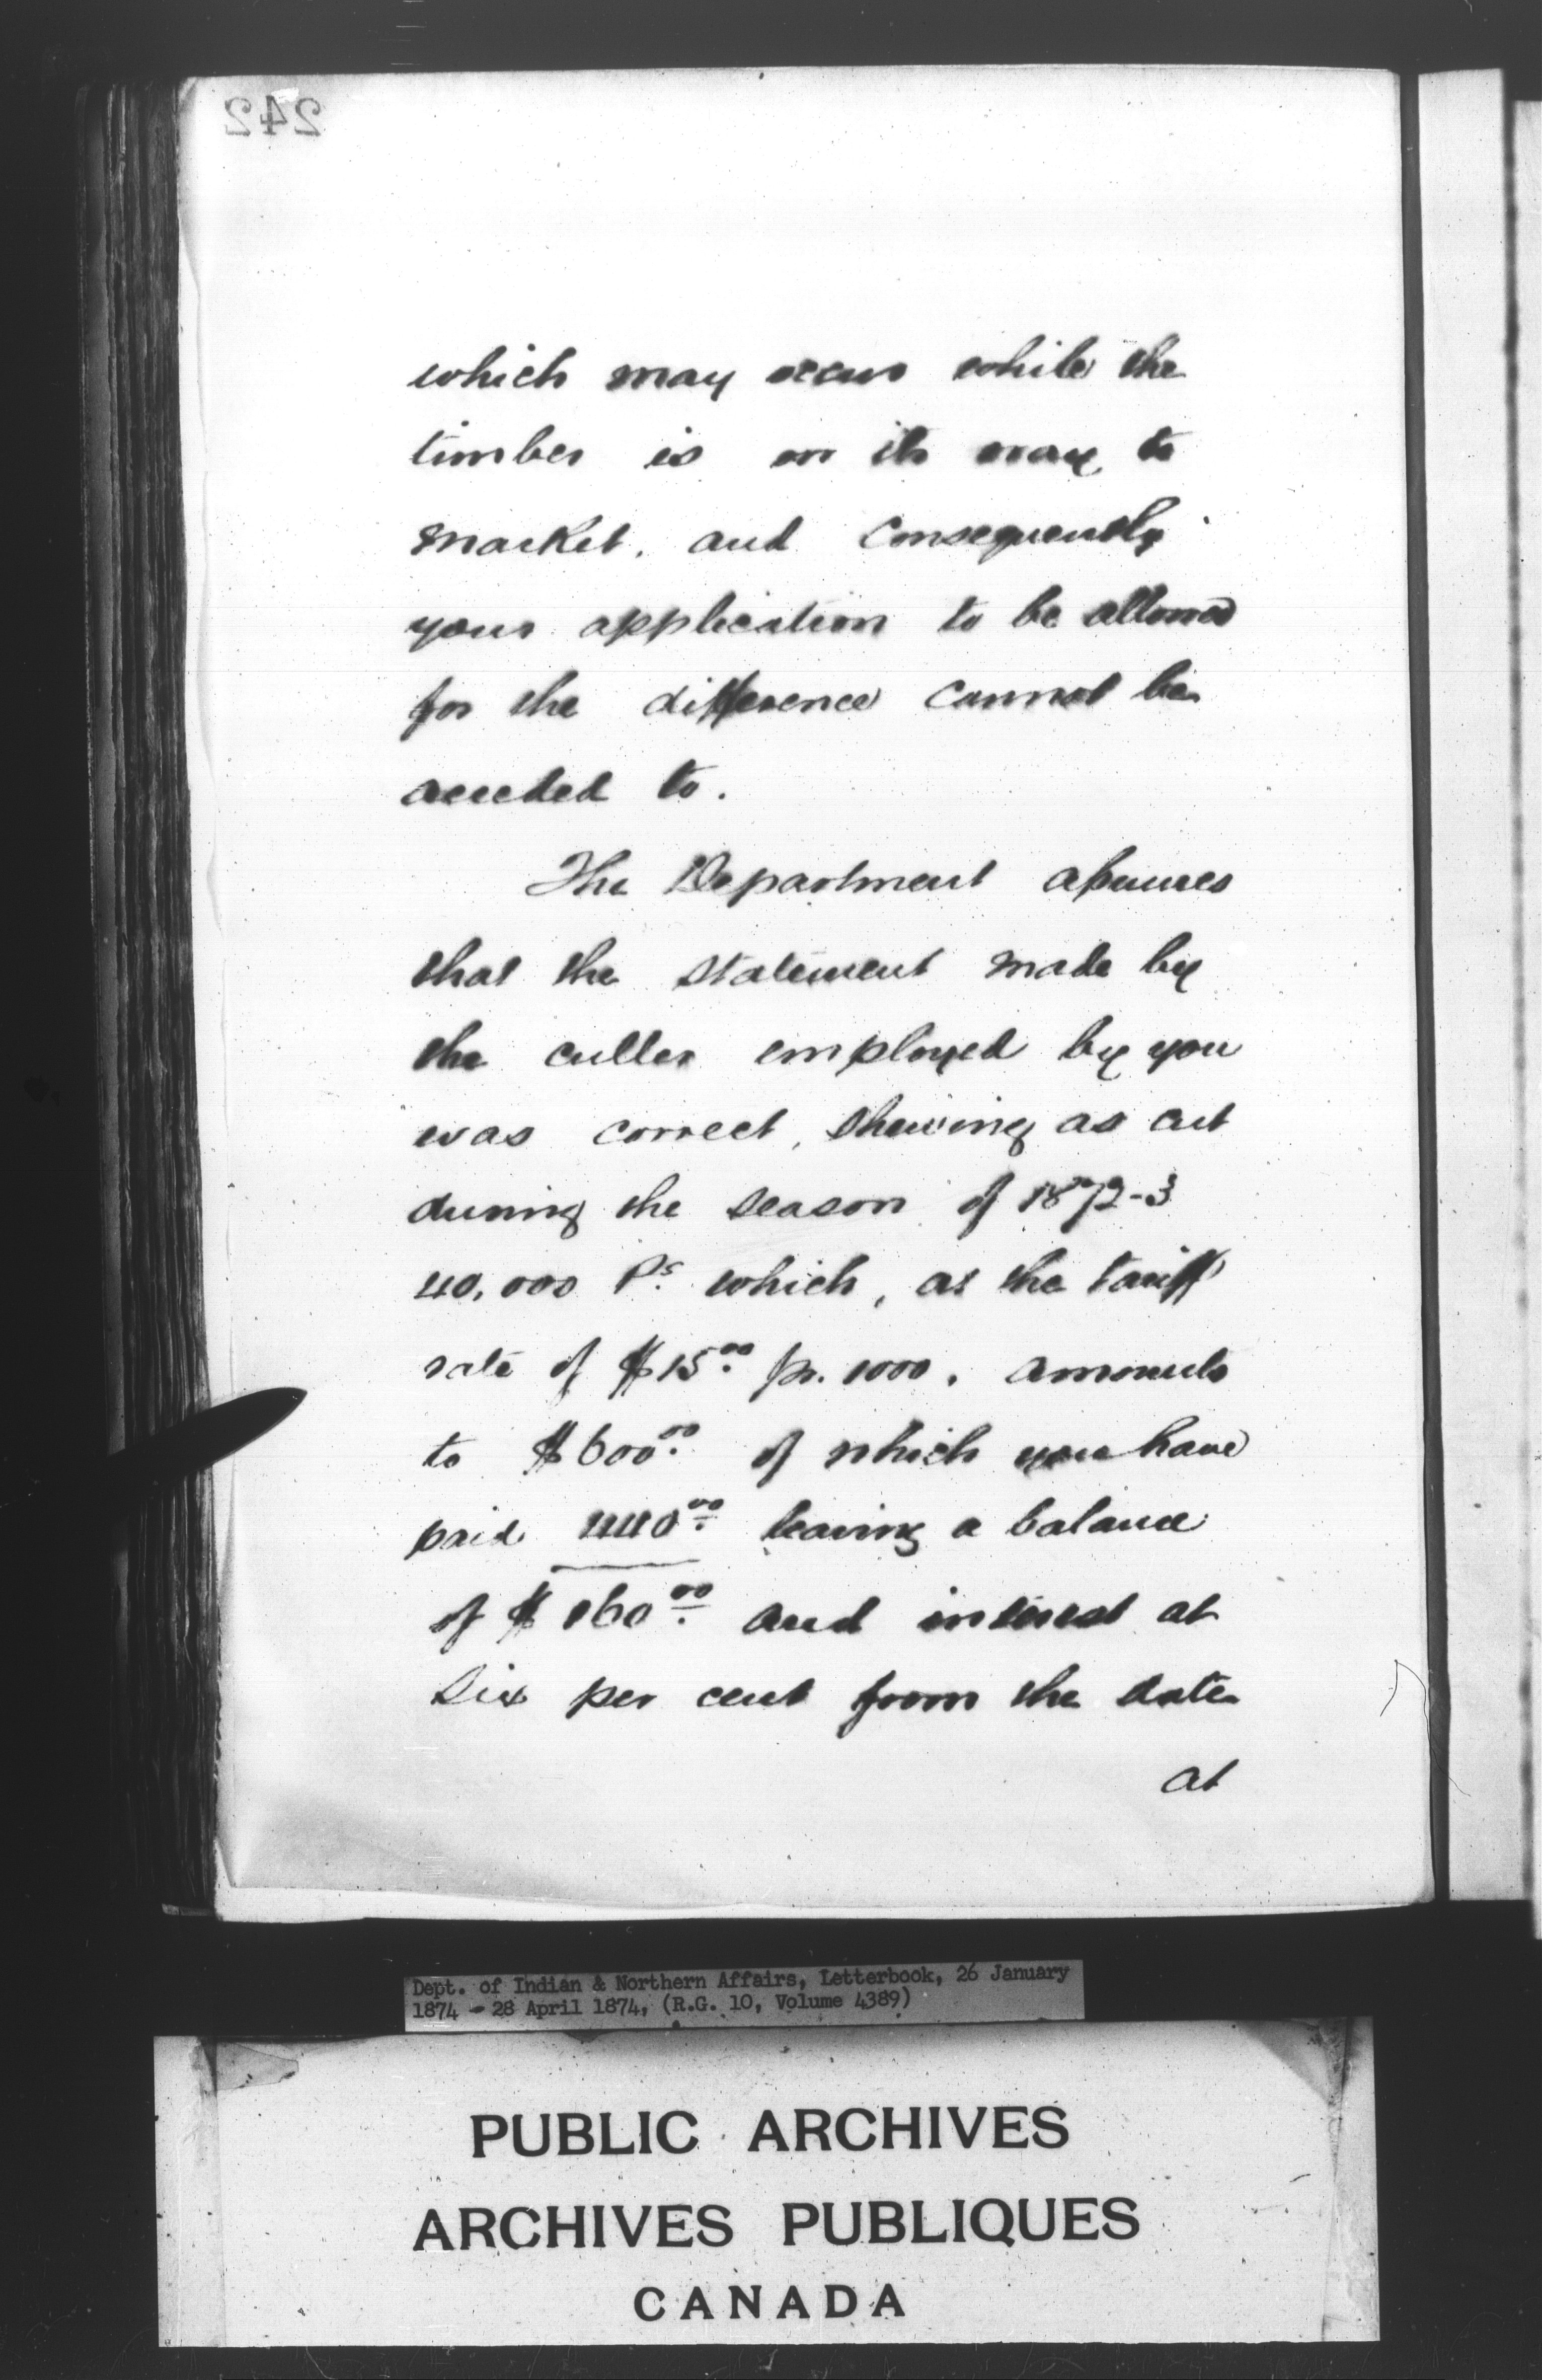 242
which may occur while the
timber is on its way to
market, and consequently
your application to be allowed
for the difference cannot be
acceded to.
The Department assumes
that the statement made by
the culler employed by you
was correct, shewing as cut
during the season of 1872-3
40,000 Ps. which, at the tariff
rate of $15.00 pr. 1000, amounts
to $600.00 of which you have
paid 440.00 leaving a balance
of $160.00 and interest at
six per cent from the date
at
Dept. of Indian & Northern Affairs, Letterbook, 26 January
1874 - 28 April 1874, (R.G. 10, Volume 4389)
PUBLIC ARCHIVES
ARCHIVES PUBLIQUES
CANADA